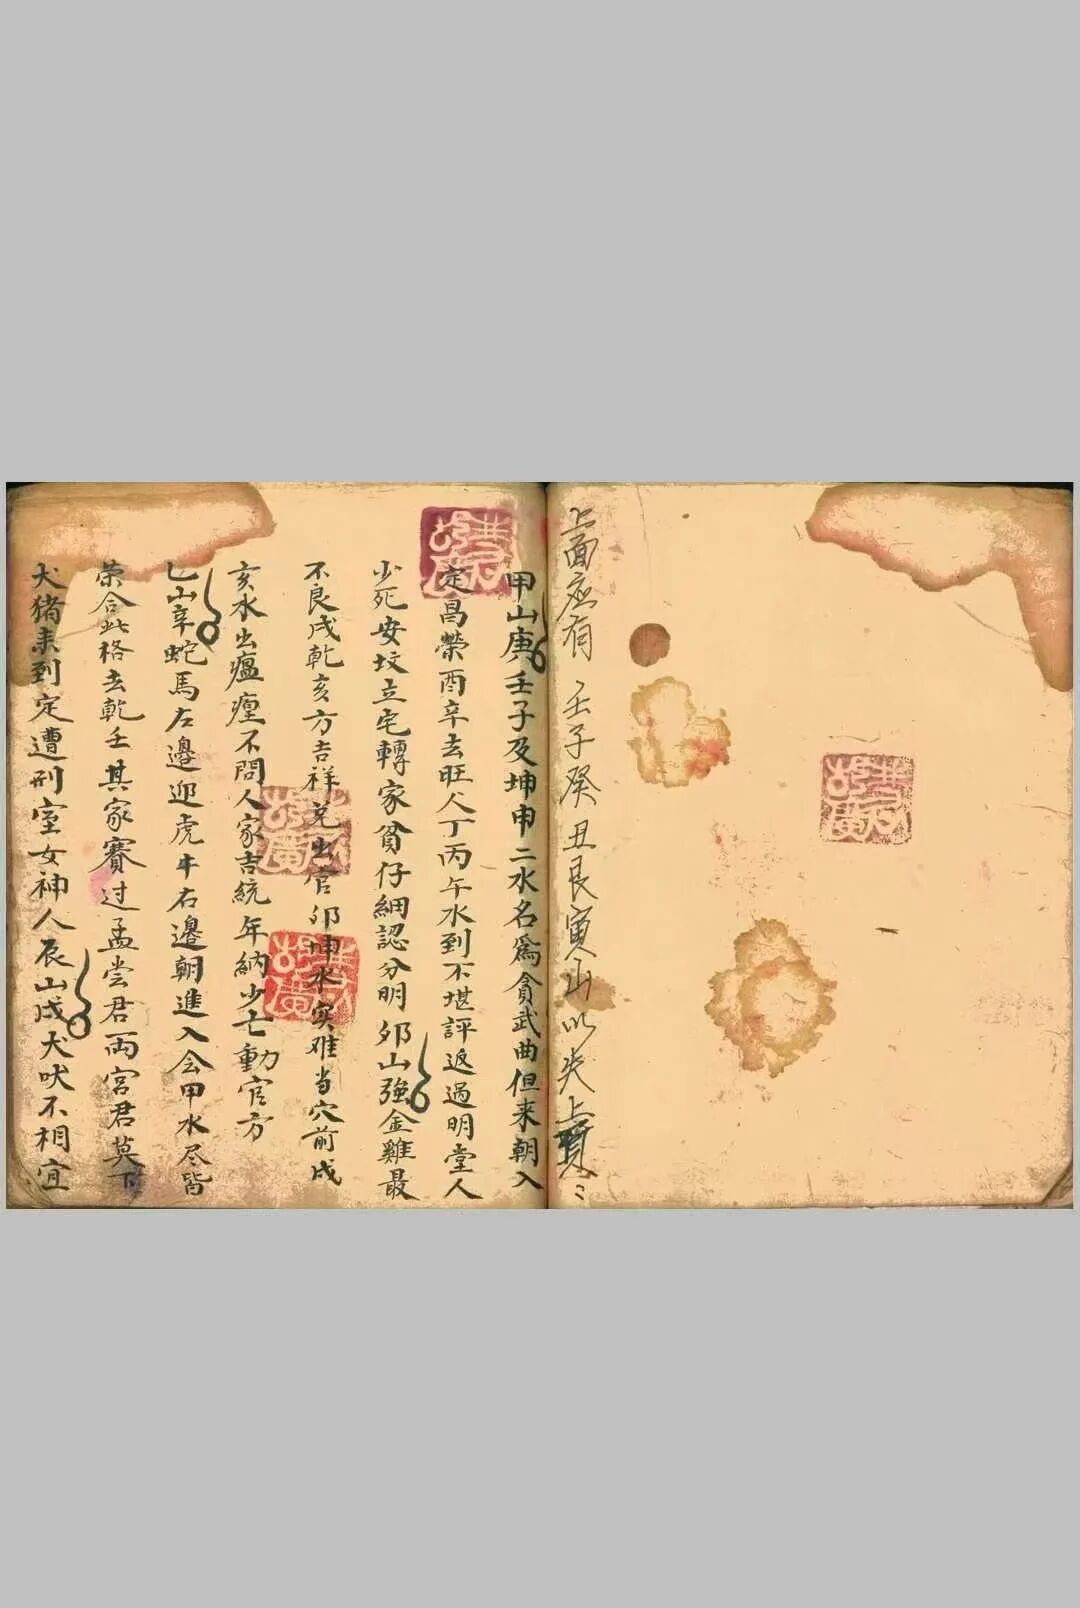 上面应有 壬子癸丑艮寅山以尖上
甲山庚壬子及坤申二水名為貪武曲但来朝入
定昌榮酉辛去旺人丁丙午水到不堪評返過明堂人
少死安坟立宅轉家貧仔細認分明 卯山強金雞最
不良戌乾亥方吉祥兑出官卯坤水实难当穴前戌
亥水出瘟㾮不問人家吉統年納少亡動官方
山辛蛇馬左邉迎虎牛右邉朝進入会甲水尽皆
荣合此格去乾壬其家賽过孟尝君両宫君莫下
犬猪来到定遭刑室女神人辰山戌犬吠不相宜